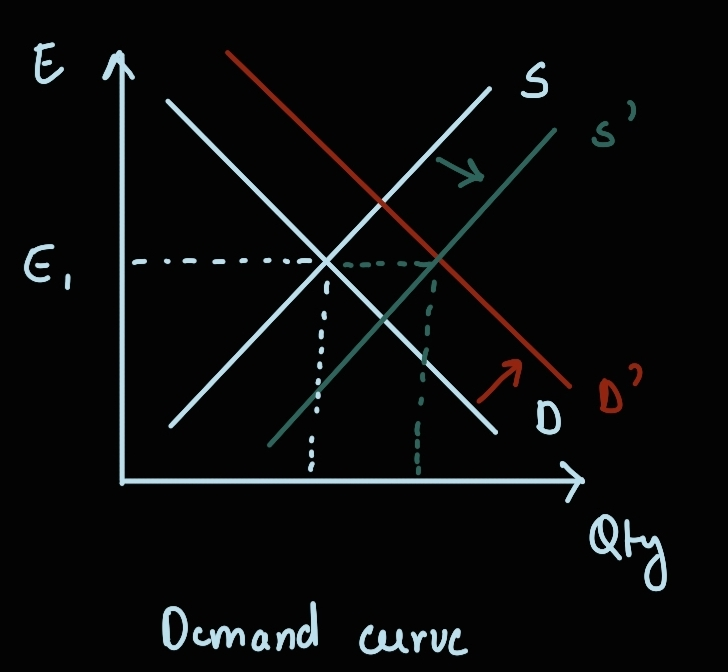 E
S
S'
E₁
D'
D
Qty
Demand curve